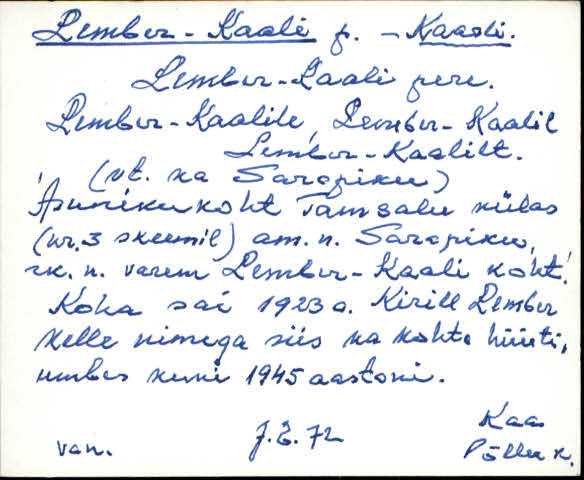 Lember-Kaali p. - Kaarli.
Lember-Kaali pere.
Lember-Kaalile, Lember-Kaalil
Lember-Kaalilt.
(vt. ka Sarapiku)
Asunikukoht Tamsalu külas
(nr. 3 skeemil) am. n. Sarapiku,
rk. n. varem Lember-Kaali koht.
Koha sai 1923 a. Kirill Lember
kelle nimega siis ka kohta hüüti,
umbes kuni 1945 aastani.
van. J.E. 72 Kaa
Põllu k.